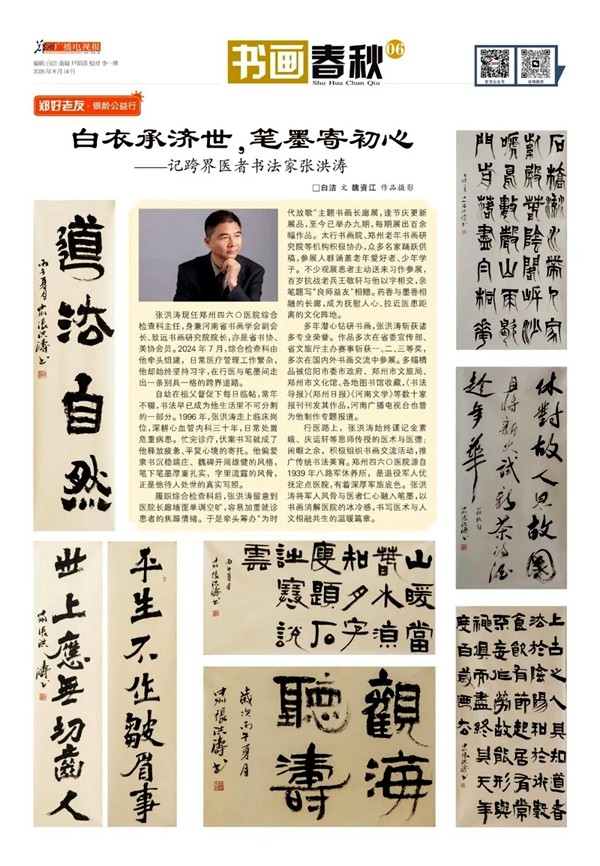 广播电视报
编辑 白洁 美编 尹萌萌 校对 李一博
2026年8月14日
书画春秋 06
Shu Hua Chun Qiu
郑好老友·银龄公益行
白衣承济世,笔墨寄初心
——记跨界医者书法家张洪涛
□白洁 文 魏资江 作品摄影
张洪涛现任郑州四六〇医院综合
检查科主任,身兼河南省书画学会副会
长、致远书画研究院院长,亦是省书协、
美协会员。2024年7月,综合检查科由
他牵头组建,日常医疗管理工作繁杂,
他却始终坚持习字,在行医与笔墨间走
出一条别具一格的跨界道路。
自幼在祖父督促下每日临帖,常年
不辍,书法早已成为他生活里不可分割
的一部分。1996年,张洪涛走上临床岗
位,深耕心血管内科三十年,日常处置
危重病患。忙完诊疗,伏案书写就成了
他释放疲惫、平复心境的寄托。他偏爱
隶书沉稳端庄、魏碑开阔雄健的风格,
笔下笔墨厚重扎实,字里流露的风骨,
正是他待人处世的真实写照。
履职综合检查科后,张洪涛留意到
医院长廊墙面单调空旷,容易加重就诊
患者的焦躁情绪。于是牵头筹办“为时
代放歌”主题书画长廊展,逢节庆更新
展品,至今已举办九期,每期展出百余
幅作品。太行书画院、郑州老年书画研
究院等机构积极协办,众多名家踊跃供
稿,参展人群涵盖老年爱好者、少年学
子。不少观展患者主动送来习作参展,
百岁抗战老兵王敬轩与他以字相交,亲
笔题写“良师益友”相赠。药香与墨香相
融的长廊,成为抚慰人心、拉近医患距
离的文化阵地。
多年潜心钻研书画,张洪涛斩获诸
多专业荣誉。作品多次在省委宣传部、
省文旅厅主办赛事斩获一、二、三等奖,
多次在国内外书画交流中参展。多幅精
品被信阳市委市政府、郑州市文旅局、
郑州市文化馆、各地图书馆收藏,《书法
导报》《郑州日报》《河南文学》等数十家
报刊刊发其作品,河南广播电视台也曾
为他制作专题报道。
行医路上,张洪涛始终谨记金素
娥、庆运轩等恩师传授的医术与医德;
闲暇之余,积极组织书画交流活动,推
广传统书法美育。郑州四六〇医院源自
1939年八路军休养所,是退役军人优
抚定点医院,有着深厚军旅底色。张洪
涛将军人风骨与医者仁心融入笔墨,以
书画消解医院的冰冷感,书写医术与人
文相融共生的温暖篇章。
道法自然
丙午夏月 張洪濤书
世上應無切齒人
張洪濤书
平生不作皺眉事
山暖當
曹水滇
和夕字
便題石
註寫說
雲
觀海
聽濤
歲次丙午夏月
張洪濤书
休對故人思故國
且將新火試新茶詩酒
趁年華
上古之人其知道者
法於陰陽和於術數
食飲有節起居有常
不妄作勞故能形與
神俱而盡終其天年
度百歲乃去